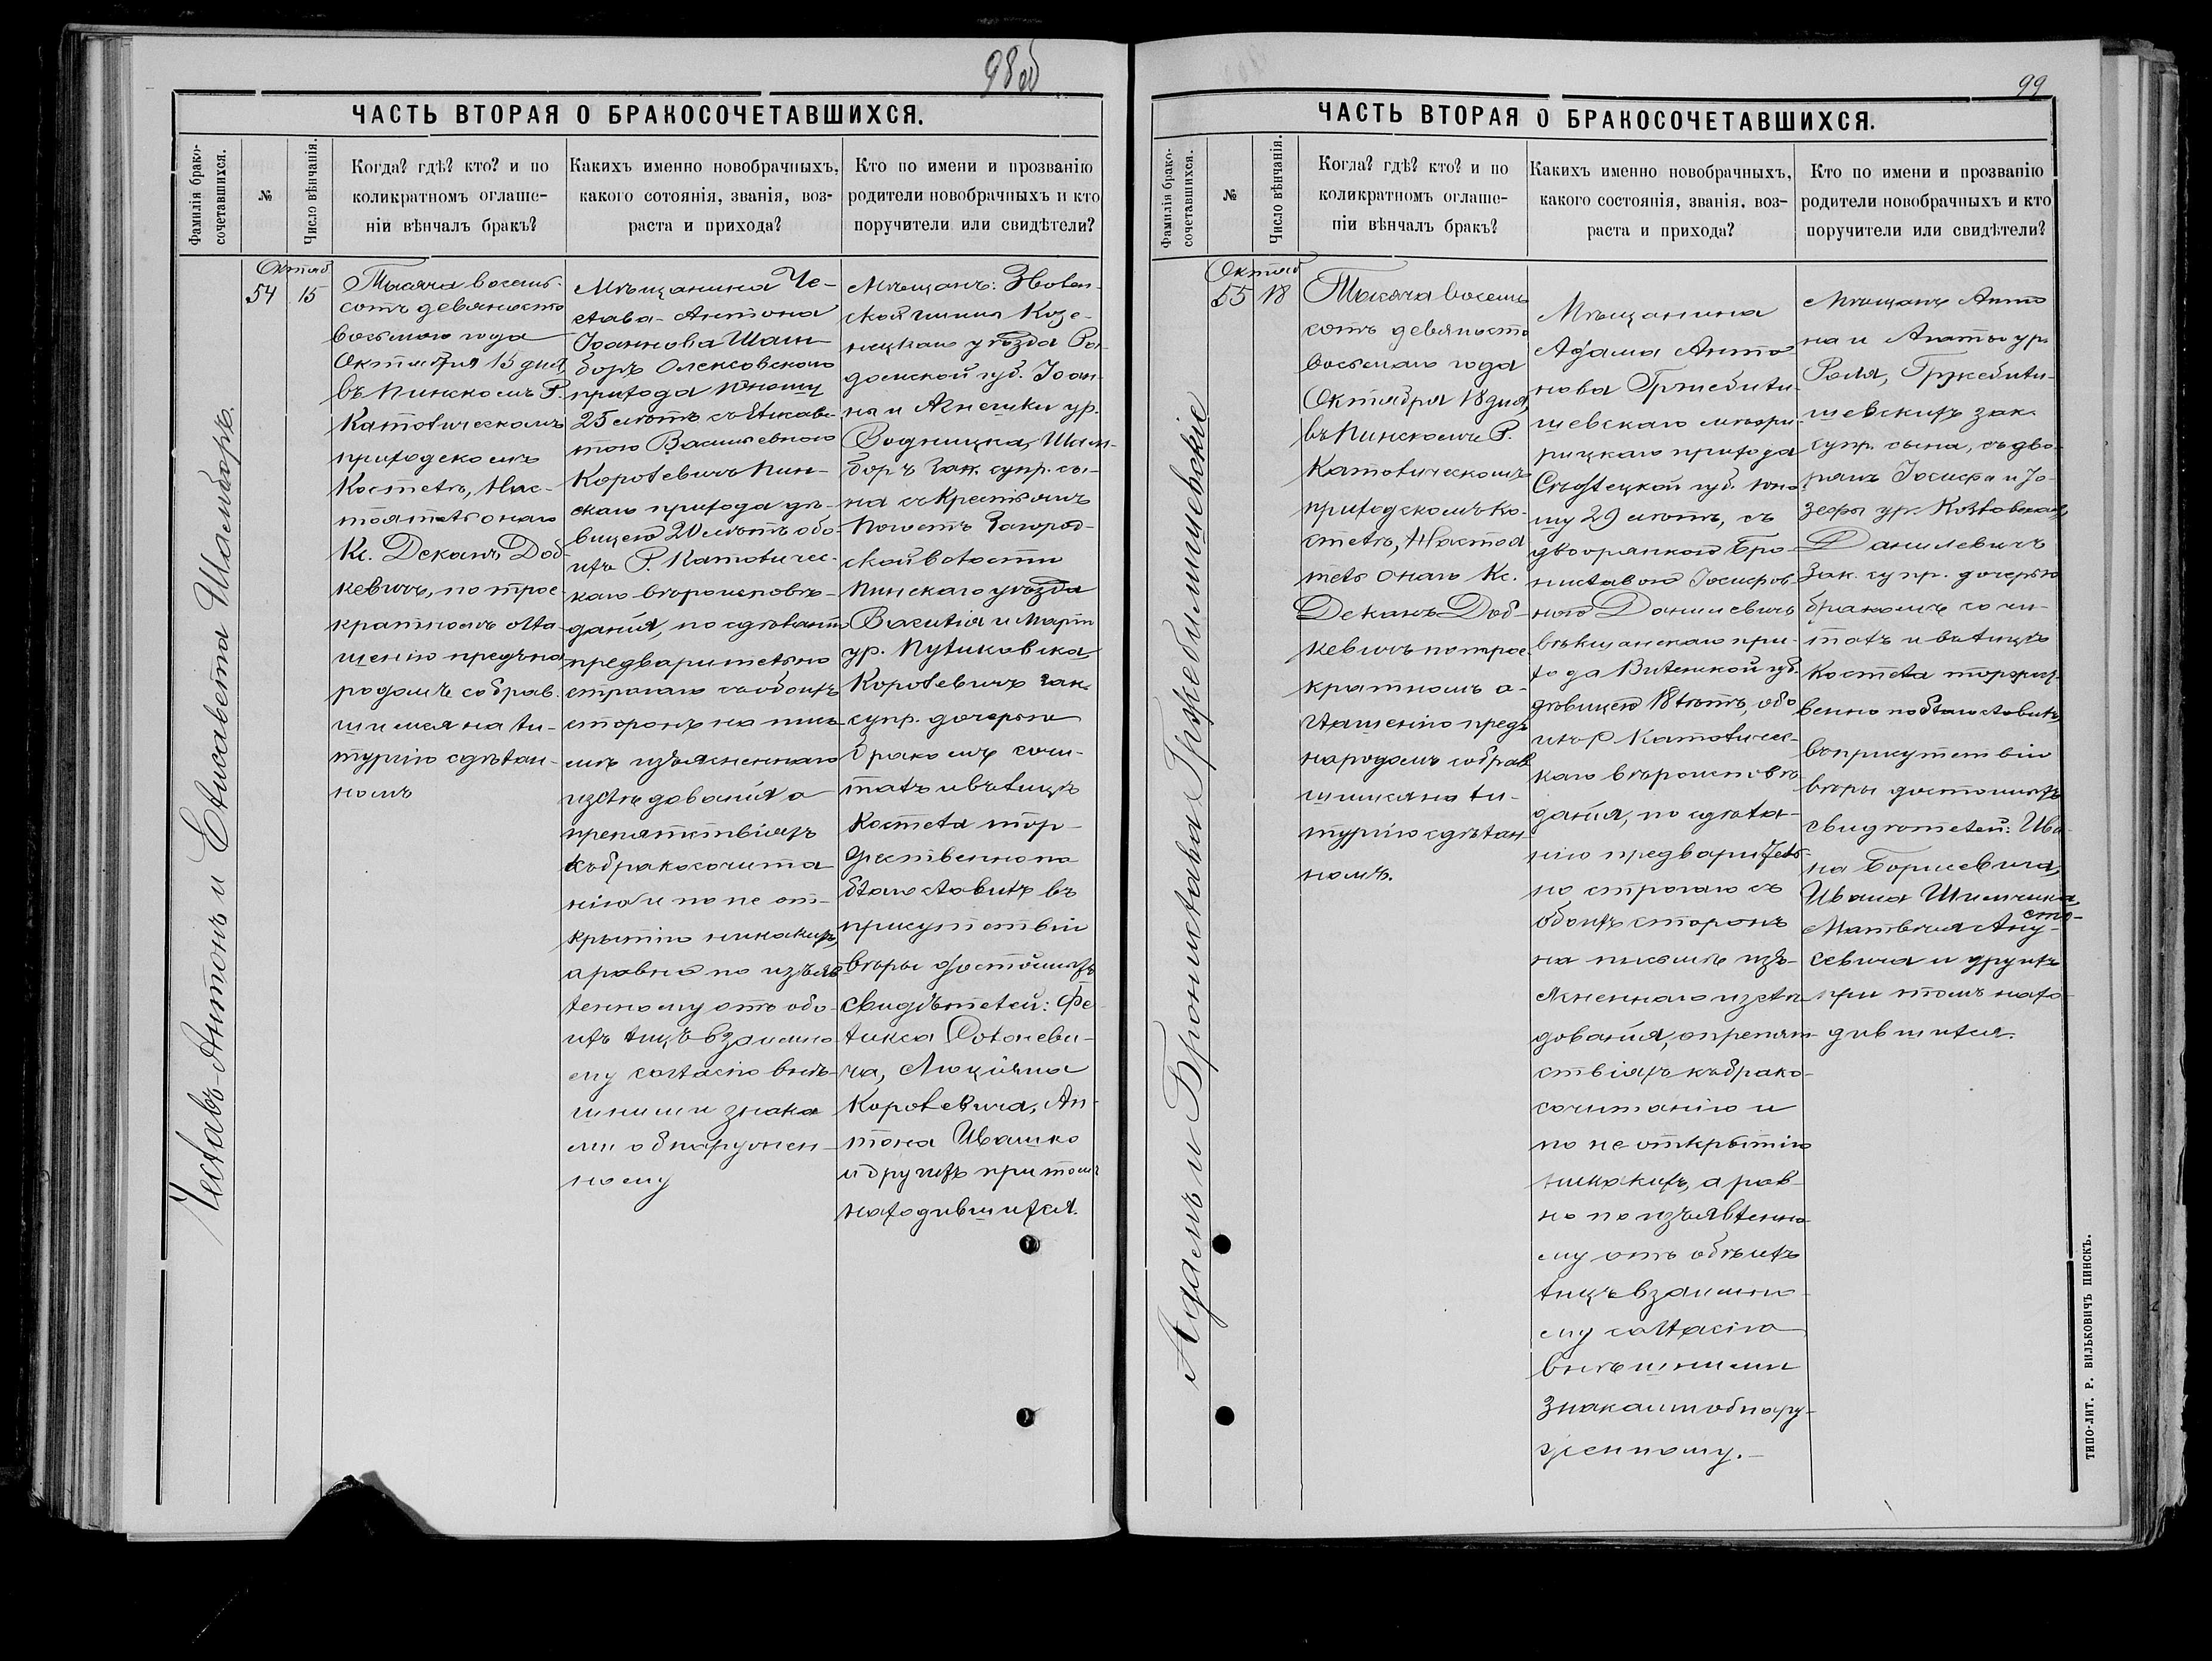 98об
ЧАСТЬ ВТОРАЯ О БРАКОСОЧЕТАВШИХСЯ.
Фамилія брако-
сочетавшихся.
№
Число вѣнчанія.
Когда? гдѣ? кто? и по
коликратномъ оглаше-
ніи вѣнчалъ бракъ?
Какихъ именно новобрачныхъ,
какого сотоянія, званія, воз-
раста и прихода?
Кто по имени и прозванію
родители новобрачныхъ и кто
поручители или свидѣтели?
Чеславъ-Антонъ и Елисавета Шамборъ.
Октяб
54
15
Тысяча восемь-
сотъ девяносто
восьмого года
Октября 15 дня,
въ Пинскомъ Р.
Католическомъ
приходскомъ
Костелѣ, Нас-
тоятель онаго
Кс. Деканъ Доб-
кевичъ, по трое-
кратномъ огла-
шенію предъ на-
родомъ собрав-
шимся на ли-
тургію сдѣлан-
номъ
Мѣщанина Че-
слава-Антона
Іоаннова Шам-
боръ Олексовскаго
прихода юношу
25 лѣтъ съ Елисаве-
тою Васильевною
Королевичъ Пин-
скаго прихода дѣ-
вицею 20 лѣтъ обо-
ихъ Р. Католичес-
каго вѣроисповѣ-
данія, по сдѣланіи
предварительно
строгаго съ обоихъ
сторонъ на пись-
мѣ изъясненнаго
изслѣдованія о
препятствіяхъ
къ бракосочета-
нію и по не от-
крытію никакихъ,
а равно по изъяв-
ленному отъ обо-
ихъ лицъ взаимно-
му согласію внѣ-
шними знака-
ми обнаружен-
ному
Мѣщанъ: Зволен-
ской гмины Козе-
ницкаго уѣзда Ра-
домской губ. Іоан-
на и Агнешки ур.
Водницка, Шам-
боръ зак. супр. сы-
на съ Крестьянъ
Погостъ Загород-
ской волости
Пинскаго уѣзда
Василія и Марты
ур. Путиковска,
Королевичъ зак.
супр. дочерью
бракомъ сочи-
талъ и въ лицѣ
Костела тор-
жественно по-
благословилъ въ
присутствіи
вѣры достойныхъ
свидѣтелей: Фе-
ликса
ча, Люціяна
Королевича, Ан-
тона Ивашко
и другихъ при томъ
находившихся.
99
ЧАСТЬ ВТОРАЯ О БРАКОСОЧЕТАВШИХСЯ.
Фамилія брако-
сочетавшихся.
№
Число вѣнчанія.
Когла? гдѣ? кто? и по
коликратномъ оглаше-
ніи вѣнчалъ бракъ?
Какихъ именно новобрачныхъ,
какого состоянія, званія, воз-
раста и прихода?
Кто по имени и прозванію
родители новобрачныхъ и кто
поручители или свидѣтели?
Адамъ и Брониславa Гржебишевскіе
Октяб
55
18
Тысяча восемь
сотъ девяносто
восьмаго года
Октября 18 дня,
въ Пинскомъ Р.
Католическомъ
приходскомъ ко-
стелѣ, Настоя
тель онаго Кс.
Деканъ Доб-
кевичъ по трое-
кратномъ о-
глашенію предъ
народомъ собрав-
шимся на ли-
тургію сдѣлан-
номъ.
Мѣщанина
Адама Анто-
нова
шевскаго
рицкаго прихода
Сѣдлецкой губ. юно
шу 29 лѣтъ, съ
дворянкой Бро-
ниславою Іосифов-
ною Данилевичъ
прихода
Виленской губ.
дѣвицею 18 лѣтъ, обо
ихъ Р Католичес-
каго вѣроисповѣ-
данія, по сдѣла-
нію предваритель-
но строгаго съ
обоихъ сторонъ
на письмѣ изъ-
ясненнаго изслѣ-
дованія, о препят-
ствіяхъ къ брако-
сочитанію и
по не открытію
никакихъ, а рав-
но по изъявленно-
му отъ обѣихъ
лицъ взаимно-
му согласію
внѣшними
знаками обнару-
женному.-
Мѣщанъ Анто
на и Агаты ур.
Роля,
шевскихъ зак.
супр. сына, съ дво-
рянъ Іосифа и Іо-
зефы ур. Козловской,
Данилевичъ
зак. супр. дочерью
бракомъ сочи-
талъ и въ лицѣ
Костела торжест-
венно поблагословилъ,
въ присутствіи
вѣры достойныхъ
свидѣтелей: Ива-
на Борисевича,
Ивана
Матвѣя
севича и другихъ
при томъ нахо-
дившихся.
ТИПО-ЛИТ. Р. ВИЛЬКОВИЧЪ ПИНСКЪ.